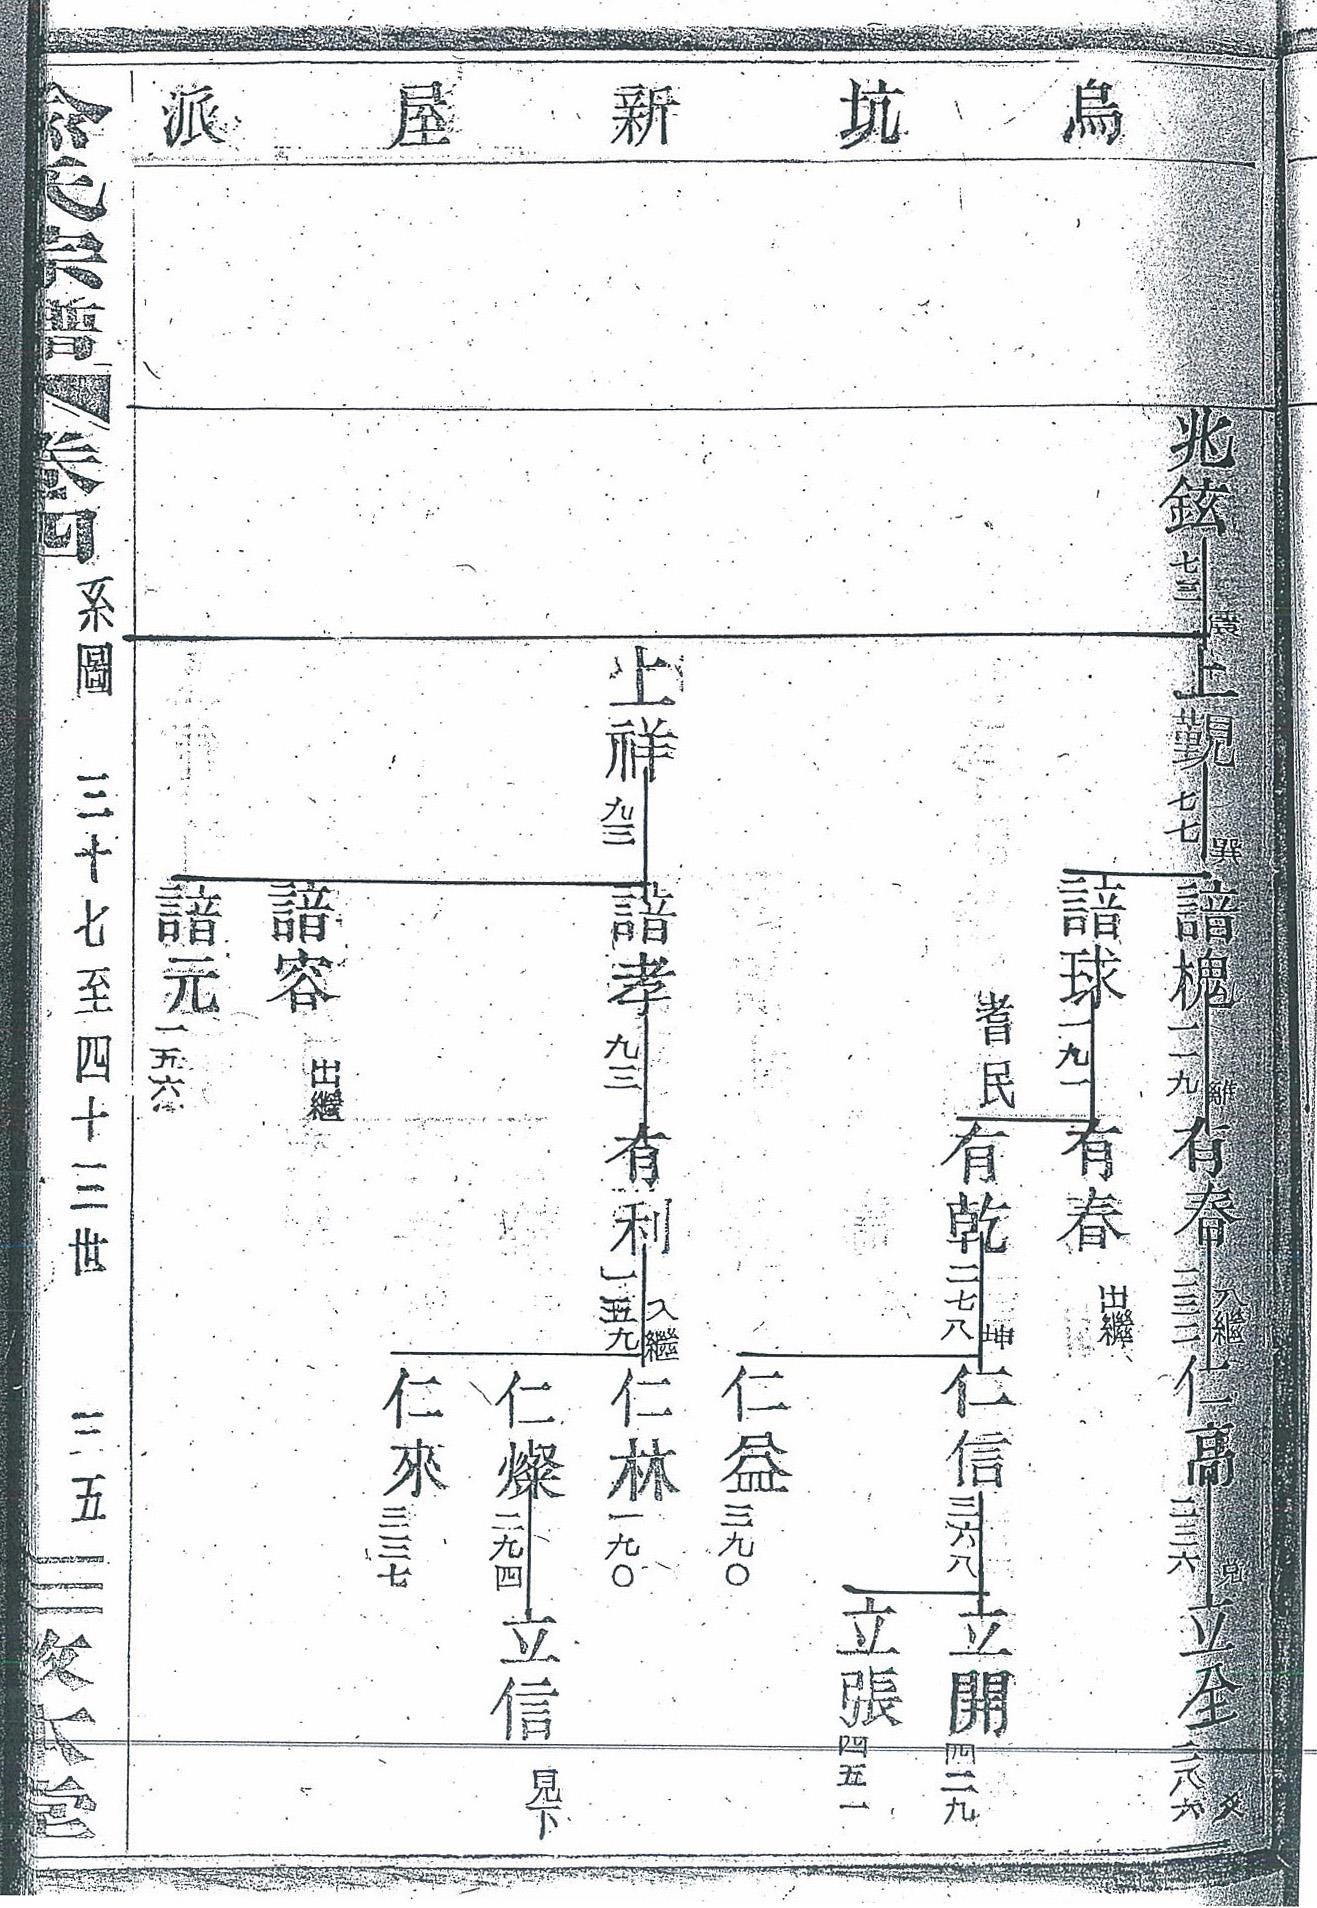 烏坑新屋派
兆鋐 七三
上覲 七七 巽
諳槐 一一九 離
有春 二三二 入繼
仁高 三三六 兌
立全 二八六
諳球 一九一
有春 出繼
耆民
有乾 二七八 坤
仁信 三六八
立開 四二九
立張 四五一
仁益 三九〇
上祥 九三
諳孝 九三
有利 一五九 入繼
仁林 一九〇
仁燦 二九四
立信 見下
仁來 三三七
諳容 出繼
諳元 一五六
氏宗譜 卷四 系圖 三十七至四十三世 三五 敦本堂